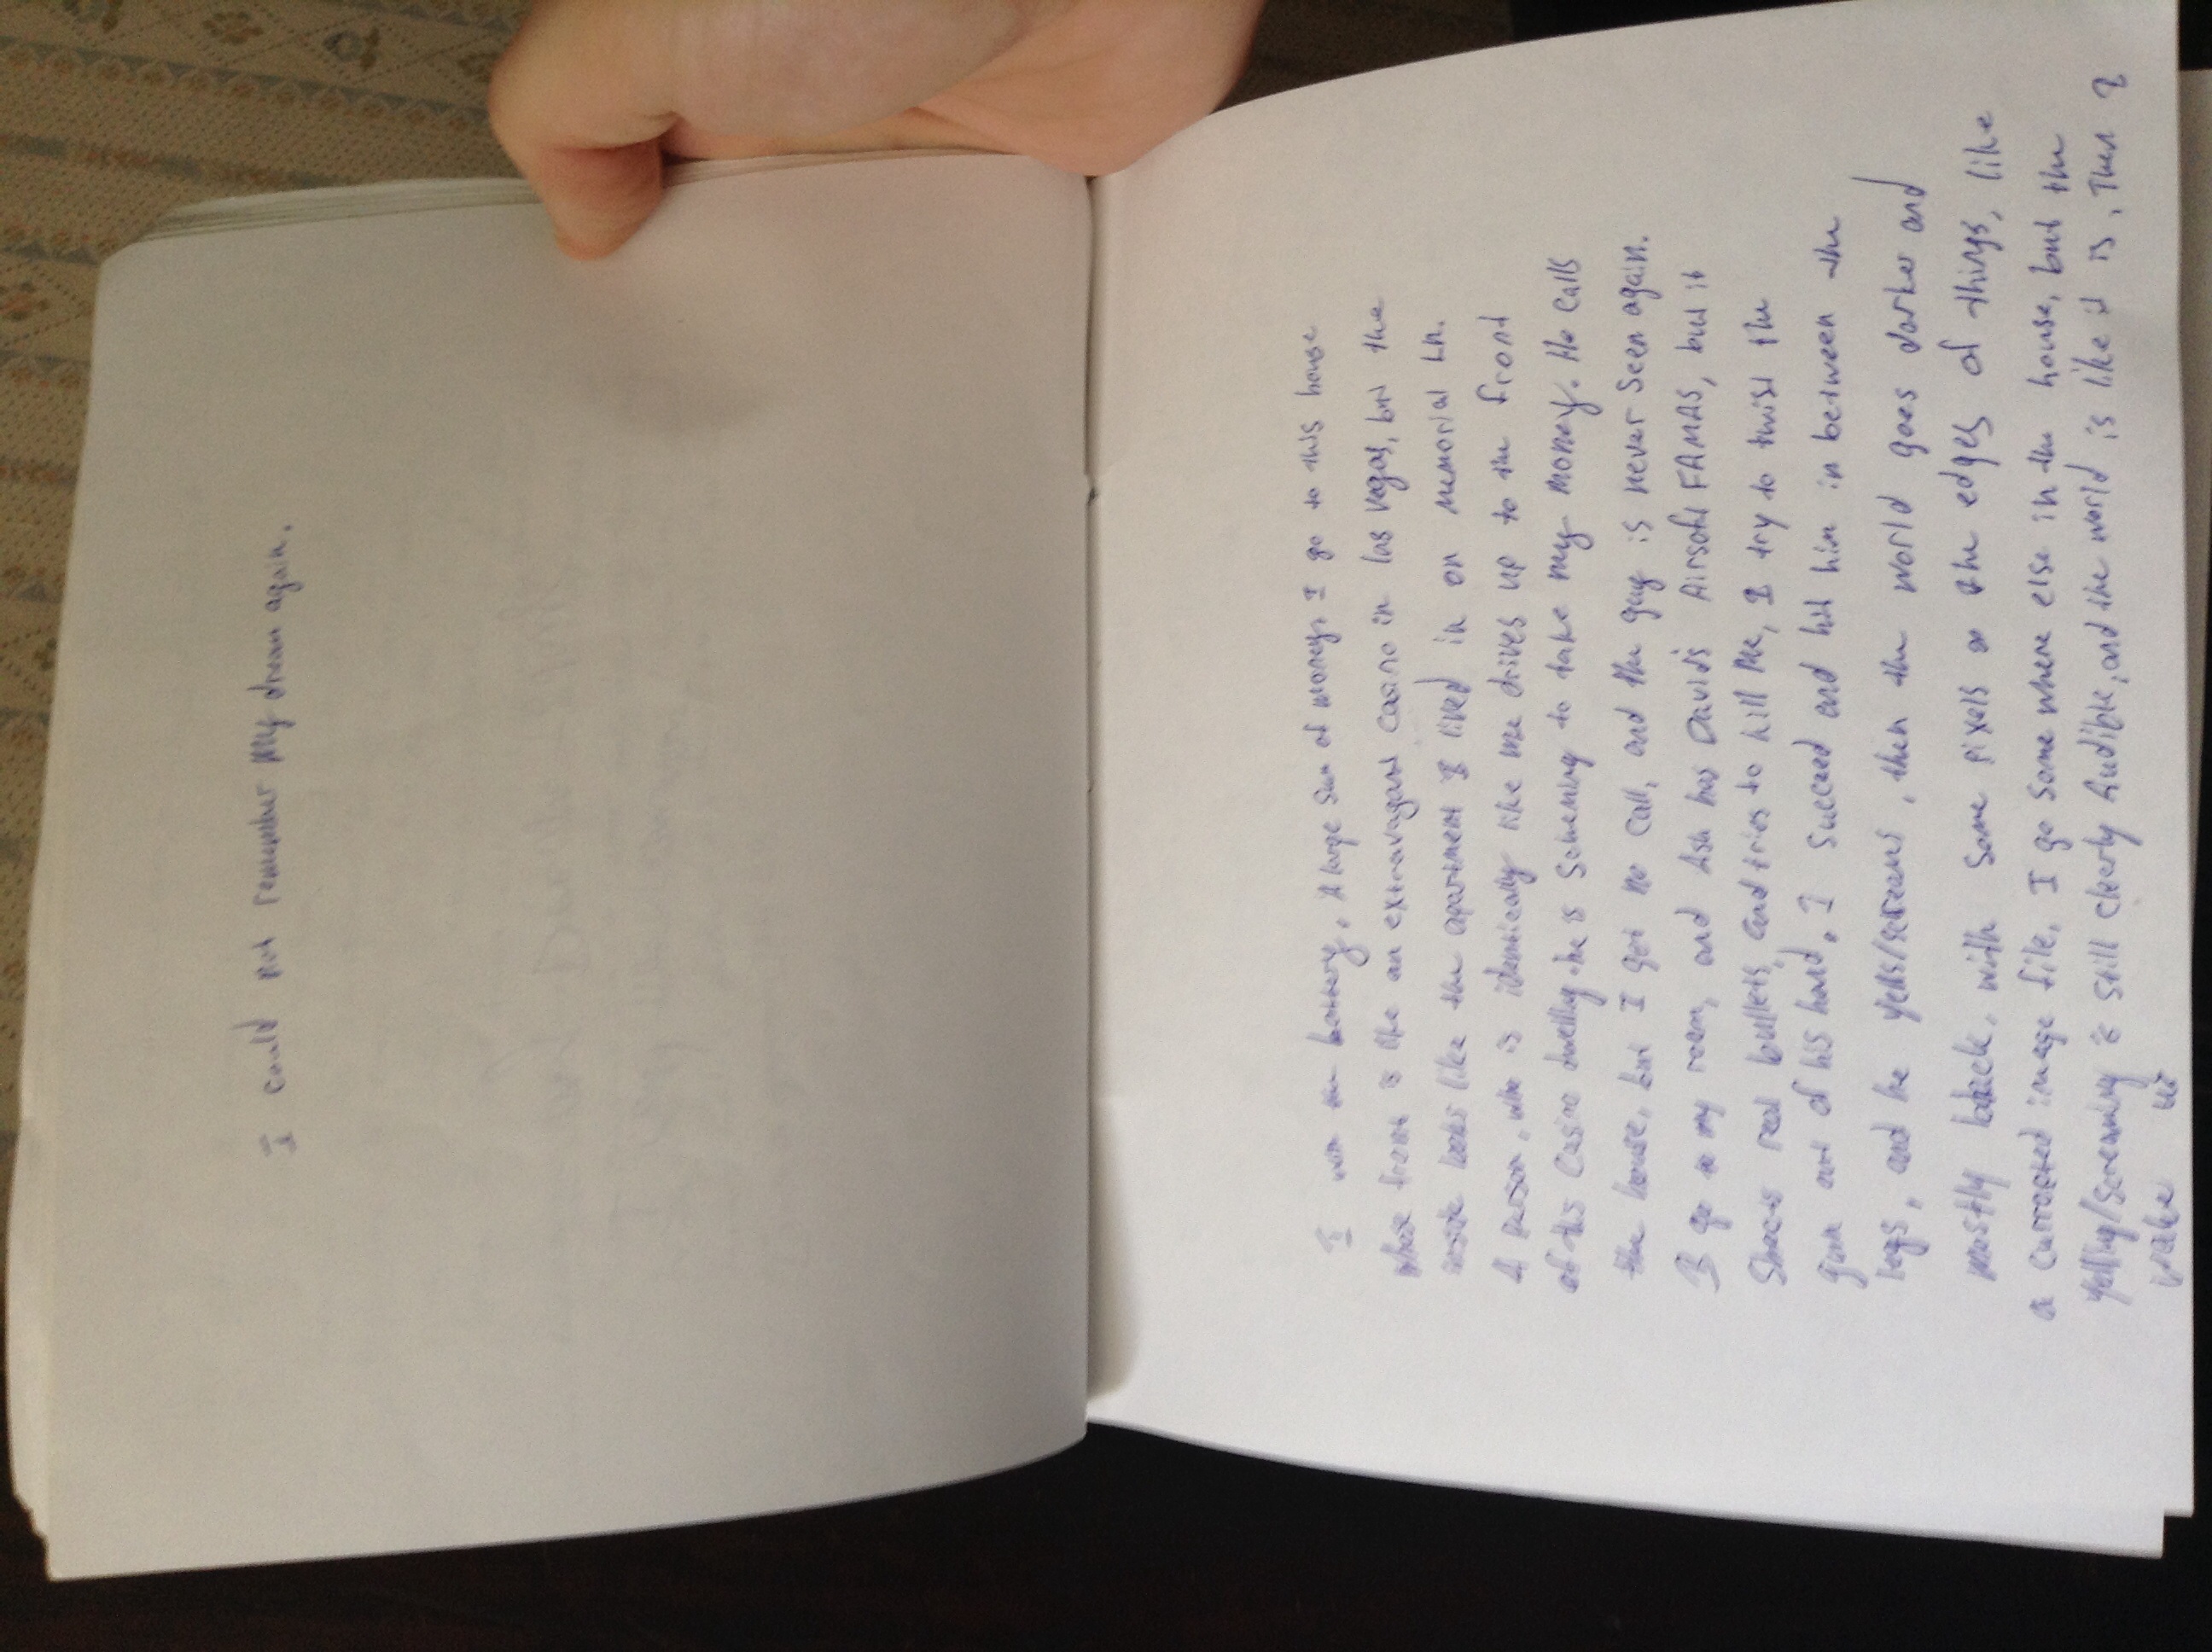 I could not remember My dream again.
I win the lottery, A large Sum of money. I go to this house
whose front is like an extravagant Casino in las vegas, but the
inside looks like the apartment I lived in on memorial Ln.
A person, who is identically like me drives up to the front
of this Casino dwelling. he is Scheming to take my money. He calls
the house, but I got no call, and the guy is never seen again.
I go to my room, and Ash has David's Airsoft FAMAS, but it
Shoots real bullets, and tries to kill Me, I try to twist the
gun out of his hand, I Succeed and hit him in between the
legs, and he yells/screams, then the world goes darker and
mostly black, with Some pixels on the edges of things, like
a corrupted image file. I go Some where else in the house, but the
yelling/screaming is still clearly Audible, and the world is like it is, Then I
wake up